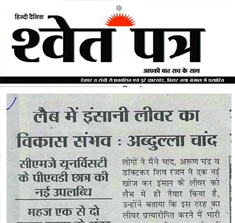 हिन्दी दैनिक
श्वेत पत्र
आपकी बात सच के साथ
लैब में इंसानी लीवर का
विकास संभव : अब्दुल्ला चांद
सीएमजे यूनिवर्सिटी
के पीएचडी छात्र की
नई उपलब्धि
महज एक से दो
लोगों ने मैंने चांद, अरूण चंद्र व
डॉक्टर शिव रंजन ने एक नई
खोज कर इंसान के लीवर को
लैब में ही तैयार किया है,
उन्होंने बताया कि इस तरह का
लीवर प्रत्यारोपित करने में भारी